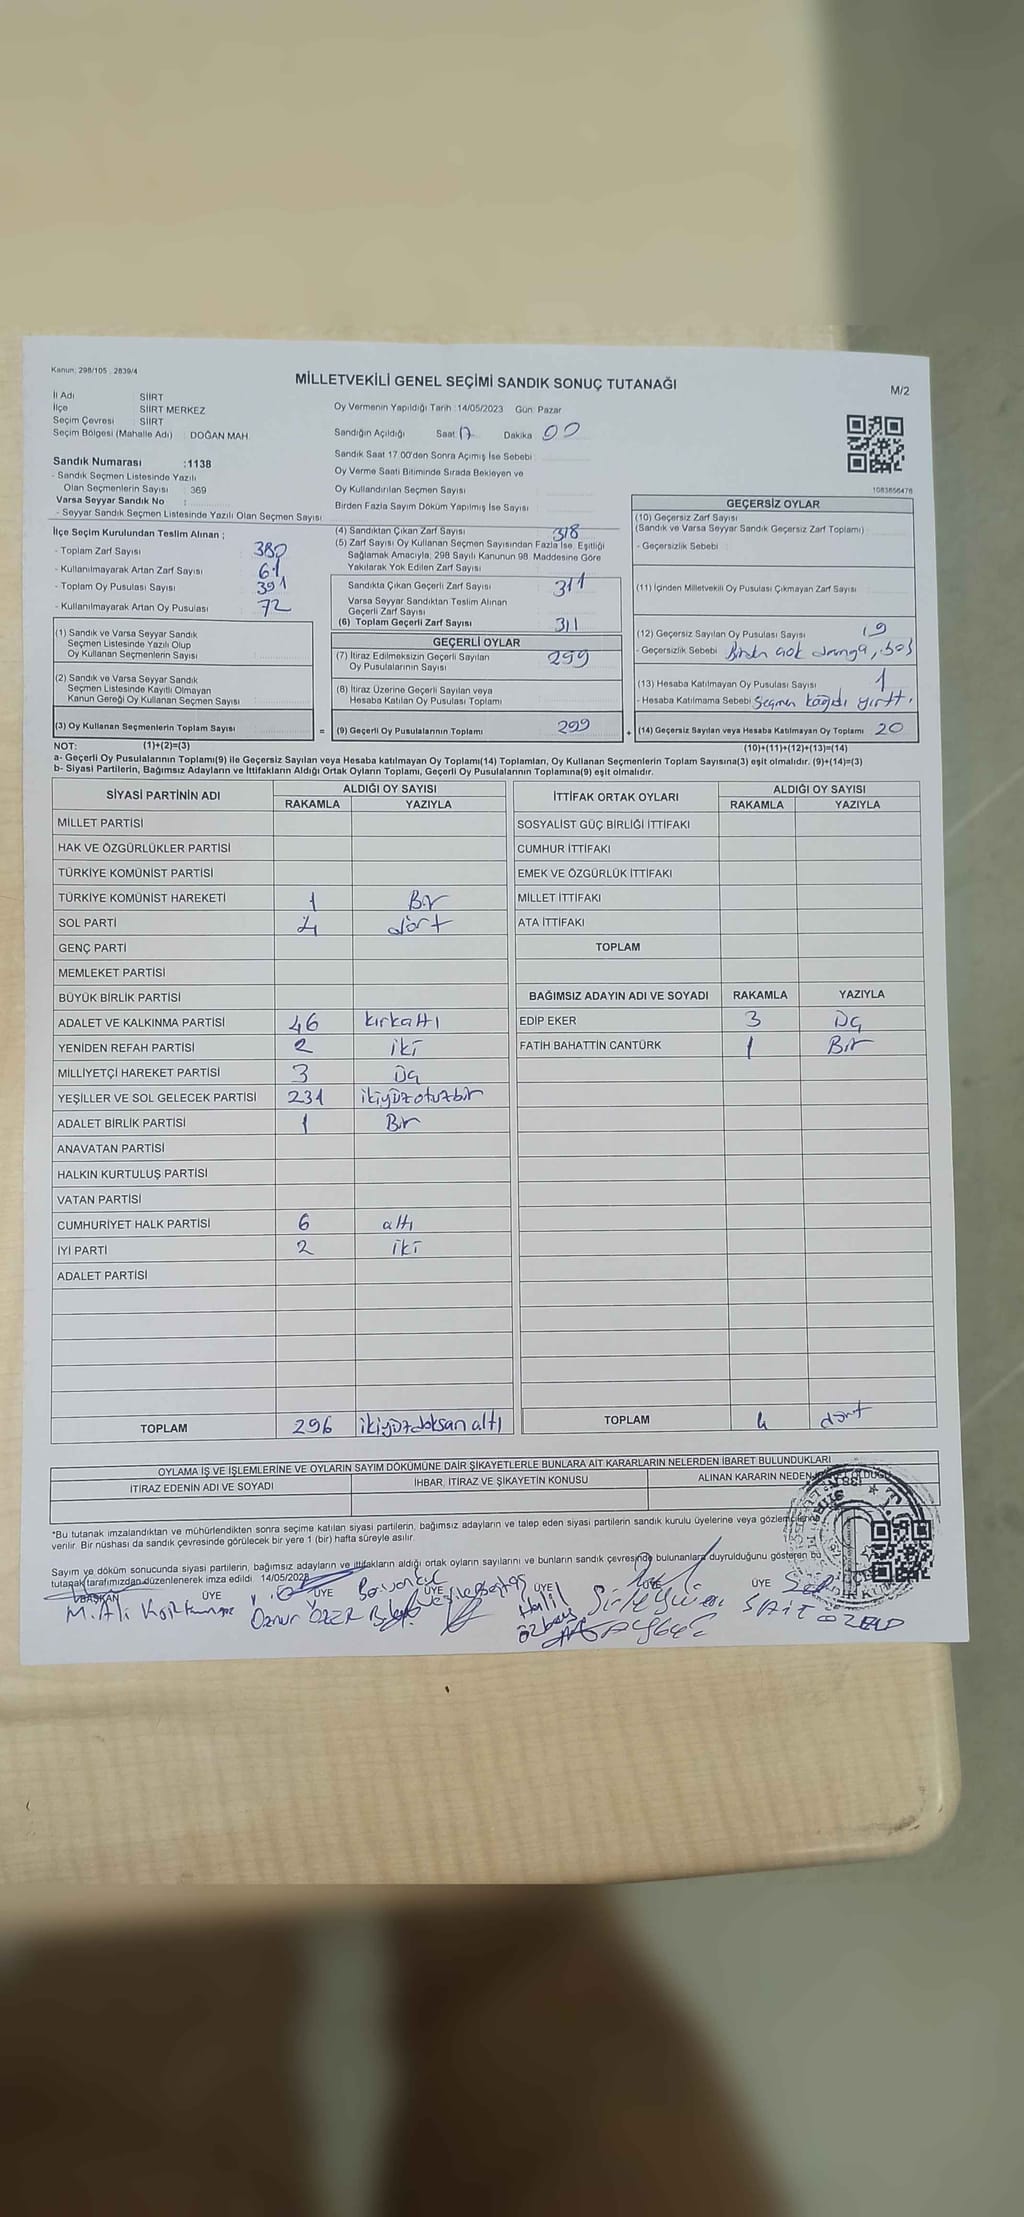 Kanun: 298/105 , 2839/4
MİLLETVEKİLİ GENEL SEÇİMİ SANDIK SONUÇ TUTANAĞI
M/2
İl Adı SİİRT
İlçe SİİRT MERKEZ
Seçim Çevresi SİİRT
Seçim Bölgesi (Mahalle Adı) : DOĞAN MAH.
Oy Vermenin Yapıldığı Tarih :14/05/2023 Gün: Pazar
Sandığın Açıldığı Saat 17 Dakika 00
Sandık Saat 17.00'den Sonra Açılmış İse Sebebi :
Oy Verme Saati Bitiminde Sırada Bekleyen ve
Oy Kullandırılan Seçmen Sayısı
Birden Fazla Sayım Döküm Yapılmış İse Sayısı :
Sandık Numarası :1138
- Sandık Seçmen Listesinde Yazılı
Olan Seçmenlerin Sayısı : 369
Varsa Seyyar Sandık No :
- Seyyar Sandık Seçmen Listesinde Yazılı Olan Seçmen Sayısı :
1083656476
İlçe Seçim Kurulundan Teslim Alınan ;
- Toplam Zarf Sayısı 380
- Kullanılmayarak Artan Zarf Sayısı 61
- Toplam Oy Pusulası Sayısı 391
- Kullanılmayarak Artan Oy Pusulası 72
(1) Sandık ve Varsa Seyyar Sandık
Seçmen Listesinde Yazılı Olup
Oy Kullanan Seçmenlerin Sayısı :
(2) Sandık ve Varsa Seyyar Sandık
Seçmen Listesinde Kayıtlı Olmayan
Kanun Gereği Oy Kullanan Seçmen Sayısı :
(3) Oy Kullanan Seçmenlerin Toplam Sayısı =
(4) Sandıktan Çıkan Zarf Sayısı 318
(5) Zarf Sayısı Oy Kullanan Seçmen Sayısından Fazla İse, Eşitliği
Sağlamak Amacıyla, 298 Sayılı Kanunun 98. Maddesine Göre
Yakılarak Yok Edilen Zarf Sayısı
Sandıkta Çıkan Geçerli Zarf Sayısı 311
Varsa Seyyar Sandıktan Teslim Alınan
Geçerli Zarf Sayısı
(6) Toplam Geçerli Zarf Sayısı 311
GEÇERLİ OYLAR
(7) İtiraz Edilmeksizin Geçerli Sayılan
Oy Pusulalarının Sayısı 299
(8) İtiraz Üzerine Geçerli Sayılan veya
Hesaba Katılan Oy Pusulası Toplamı
(9) Geçerli Oy Pusulalarının Toplamı 299 +
GEÇERSİZ OYLAR
(10) Geçersiz Zarf Sayısı
(Sandık ve Varsa Seyyar Sandık Geçersiz Zarf Toplamı) :
- Geçersizlik Sebebi :
(11) İçinden Milletvekili Oy Pusulası Çıkmayan Zarf Sayısı :
(12) Geçersiz Sayılan Oy Pusulası Sayısı 19
- Geçersizlik Sebebi Birden çok damga, boş
(13) Hesaba Katılmayan Oy Pusulası Sayısı 1
- Hesaba Katılmama Sebebi Seçmen kağıdı yırttı.
(14) Geçersiz Sayılan veya Hesaba Katılmayan Oy Toplamı 20
NOT: (1)+(2)=(3) (10)+(11)+(12)+(13)=(14)
a- Geçerli Oy Pusulalarının Toplamı(9) ile Geçersiz Sayılan veya Hesaba katılmayan Oy Toplamı(14) Toplamları, Oy Kullanan Seçmenlerin Toplam Sayısına(3) eşit olmalıdır. (9)+(14)=(3)
b- Siyasi Partilerin, Bağımsız Adayların ve İttifakların Aldığı Ortak Oyların Toplamı, Geçerli Oy Pusulalarının Toplamına(9) eşit olmalıdır.
SİYASİ PARTİNİN ADI ALDIĞI OY SAYISI
RAKAMLA YAZIYLA
MİLLET PARTİSİ
HAK VE ÖZGÜRLÜKLER PARTİSİ
TÜRKİYE KOMÜNİST PARTİSİ
TÜRKİYE KOMÜNİST HAREKETİ 1 Bir
SOL PARTİ 4 dört
GENÇ PARTİ
MEMLEKET PARTİSİ
BÜYÜK BİRLİK PARTİSİ
ADALET VE KALKINMA PARTİSİ 46 kırkaltı
YENİDEN REFAH PARTİSİ 2 iki
MİLLİYETÇİ HAREKET PARTİSİ 3 Üç
YEŞİLLER VE SOL GELECEK PARTİSİ 231 ikiyüzotuzbir
ADALET BİRLİK PARTİSİ 1 Bir
ANAVATAN PARTİSİ
HALKIN KURTULUŞ PARTİSİ
VATAN PARTİSİ
CUMHURİYET HALK PARTİSİ 6 altı
İYİ PARTİ 2 iki
ADALET PARTİSİ
TOPLAM 296 ikiyüzdoksan altı
İTTİFAK ORTAK OYLARI ALDIĞI OY SAYISI
RAKAMLA YAZIYLA
SOSYALİST GÜÇ BİRLİĞİ İTTİFAKI
CUMHUR İTTİFAKI
EMEK VE ÖZGÜRLÜK İTTİFAKI
MİLLET İTTİFAKI
ATA İTTİFAKI
TOPLAM
BAĞIMSIZ ADAYIN ADI VE SOYADI RAKAMLA YAZIYLA
EDİP EKER 3 Üç
FATİH BAHATTİN CANTÜRK 1 Bir
TOPLAM 4 dört
OYLAMA İŞ VE İŞLEMLERİNE VE OYLARIN SAYIM DÖKÜMÜNE DAİR ŞİKAYETLERLE BUNLARA AİT KARARLARIN NELERDEN İBARET BULUNDUKLARI
İTİRAZ EDENİN ADI VE SOYADI İHBAR, İTİRAZ VE ŞİKAYETİN KONUSU ALINAN KARARIN NEDEN
*Bu tutanak imzalandıktan ve mühürlendikten sonra seçime katılan siyasi partilerin, bağımsız adayların ve talep eden siyasi partilerin sandık kurulu üyelerine veya gözlemcilerine
verilir. Bir nüshası da sandık çevresinde görülecek bir yere 1 (bir) hafta süreyle asılır.
Sayım ve döküm sonucunda siyasi partilerin, bağımsız adayların ve ittifakların aldığı ortak oyların sayılarını ve bunların sandık çevresinde bulunanlara duyrulduğunu gösteren bu
tutanak tarafımızdan düzenlenerek imza edildi. 14/05/2023
BAŞKAN ÜYE ÜYE ÜYE ÜYE ÜYE ÜYE
M. Ali Korkmaz Öznur ÖZER Halil Özbey SAİT ÖZALP